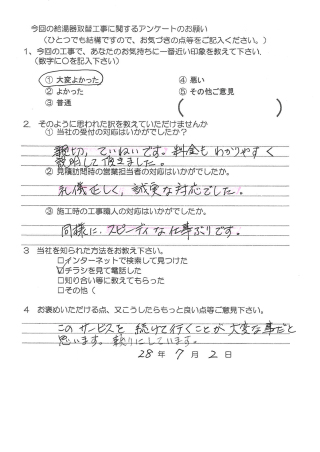 今回の給湯器取替工事に関するアンケートのお願い
(ひとつでも結構ですので、お気づきの点等をご記入ください。)
1、今回の工事で、あなたのお気持ちに一番近い印象を教えて下さい。
(数字に○を記入下さい)
① 大変よかった ④ 悪い
② よかった ⑤ その他ご意見
③ 普通 ( )
2. そのように思われた訳を教えていただけませんか
① 当社の受付の対応はいかがでしたか?
親切、ていねいです。料金もわかりやすく
説明して頂きました。
② 見積訪問時の営業担当者の対応はいかがでしたか?
礼儀正しく、誠実な対応でした。
③ 施工時の工事職人の対応はいかがでしたか。
同様に、スピーディな仕事ぶりです。
3 当社を知られた方法をお教え下さい。
□インターネットで検索して見つけた
☑チラシを見て電話した
□知り合い等に教えてもらった
□その他(
4 お褒めいただける点、又こうしたらもっと良い点等ご意見下さい。
このサービスを続けて行くことが大変な事だと
思います。頼りにしています。
28 年 7 月 2 日